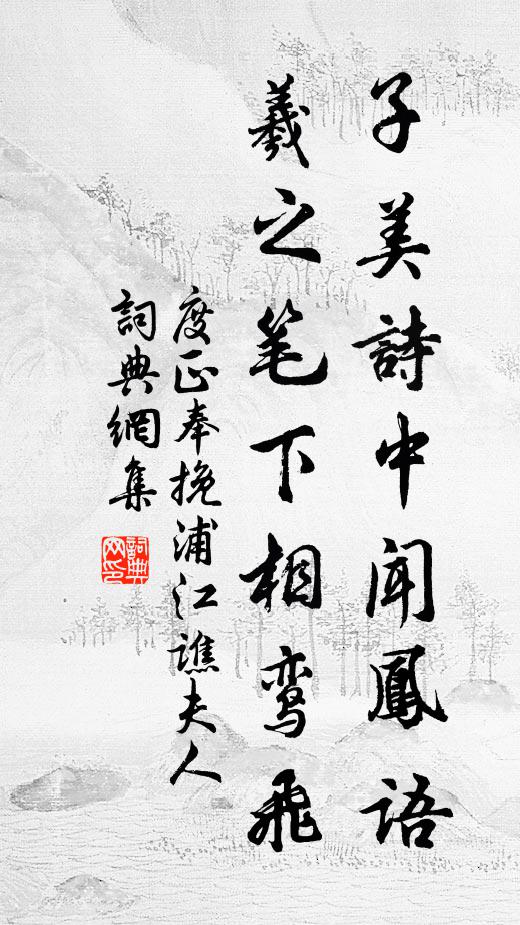 子美詩中聞鳳語
羲之笔下相鸾飛
度正奉挽浦江譙夫人
詞典網集
詞典网印